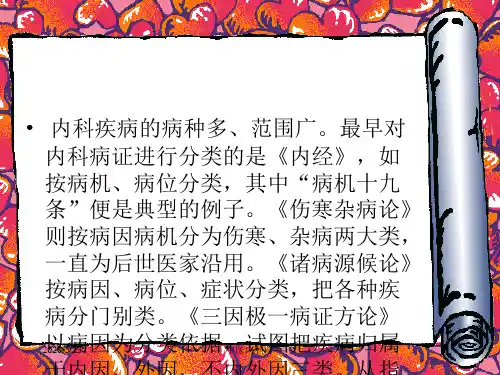 • 内科疾病的病种多、范围广。最早对
内科病证进行分类的是《内经》，如
按病机、病位分类，其中“病机十九
条”便是典型的例子。《伤寒杂病论》
则按病因病机分为伤寒、杂病两大类，
一直为后世医家沿用。《诸病源候论》
按病因、病位、症状分类，把各种疾
病分门别类。《三因极一病证方论》
以病因为分类依据，试图把疾病归属
于内因、外因、不内外因三类，从指